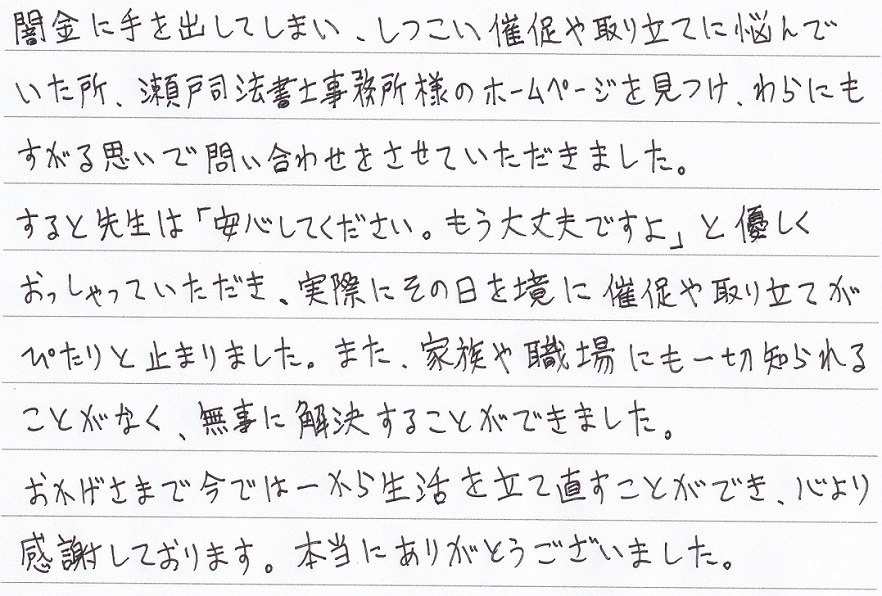 闇金に手を出してしまい、しつこい催促や取り立てに悩んで
いた所、瀬戸司法書士事務所様のホームページを見つけ、わらにも
すがる思いで問い合わせをさせていただきました。
すると先生は「安心してください。もう大丈夫ですよ」と優しく
おっしゃっていただき、実際にその日を境に催促や取り立てが
ぴたりと止まりました。また、家族や職場にも一切知られる
ことがなく、無事に解決することができました。
おかげさまで今では一から生活を立て直すことができ、心より
感謝しております。本当にありがとうございました。